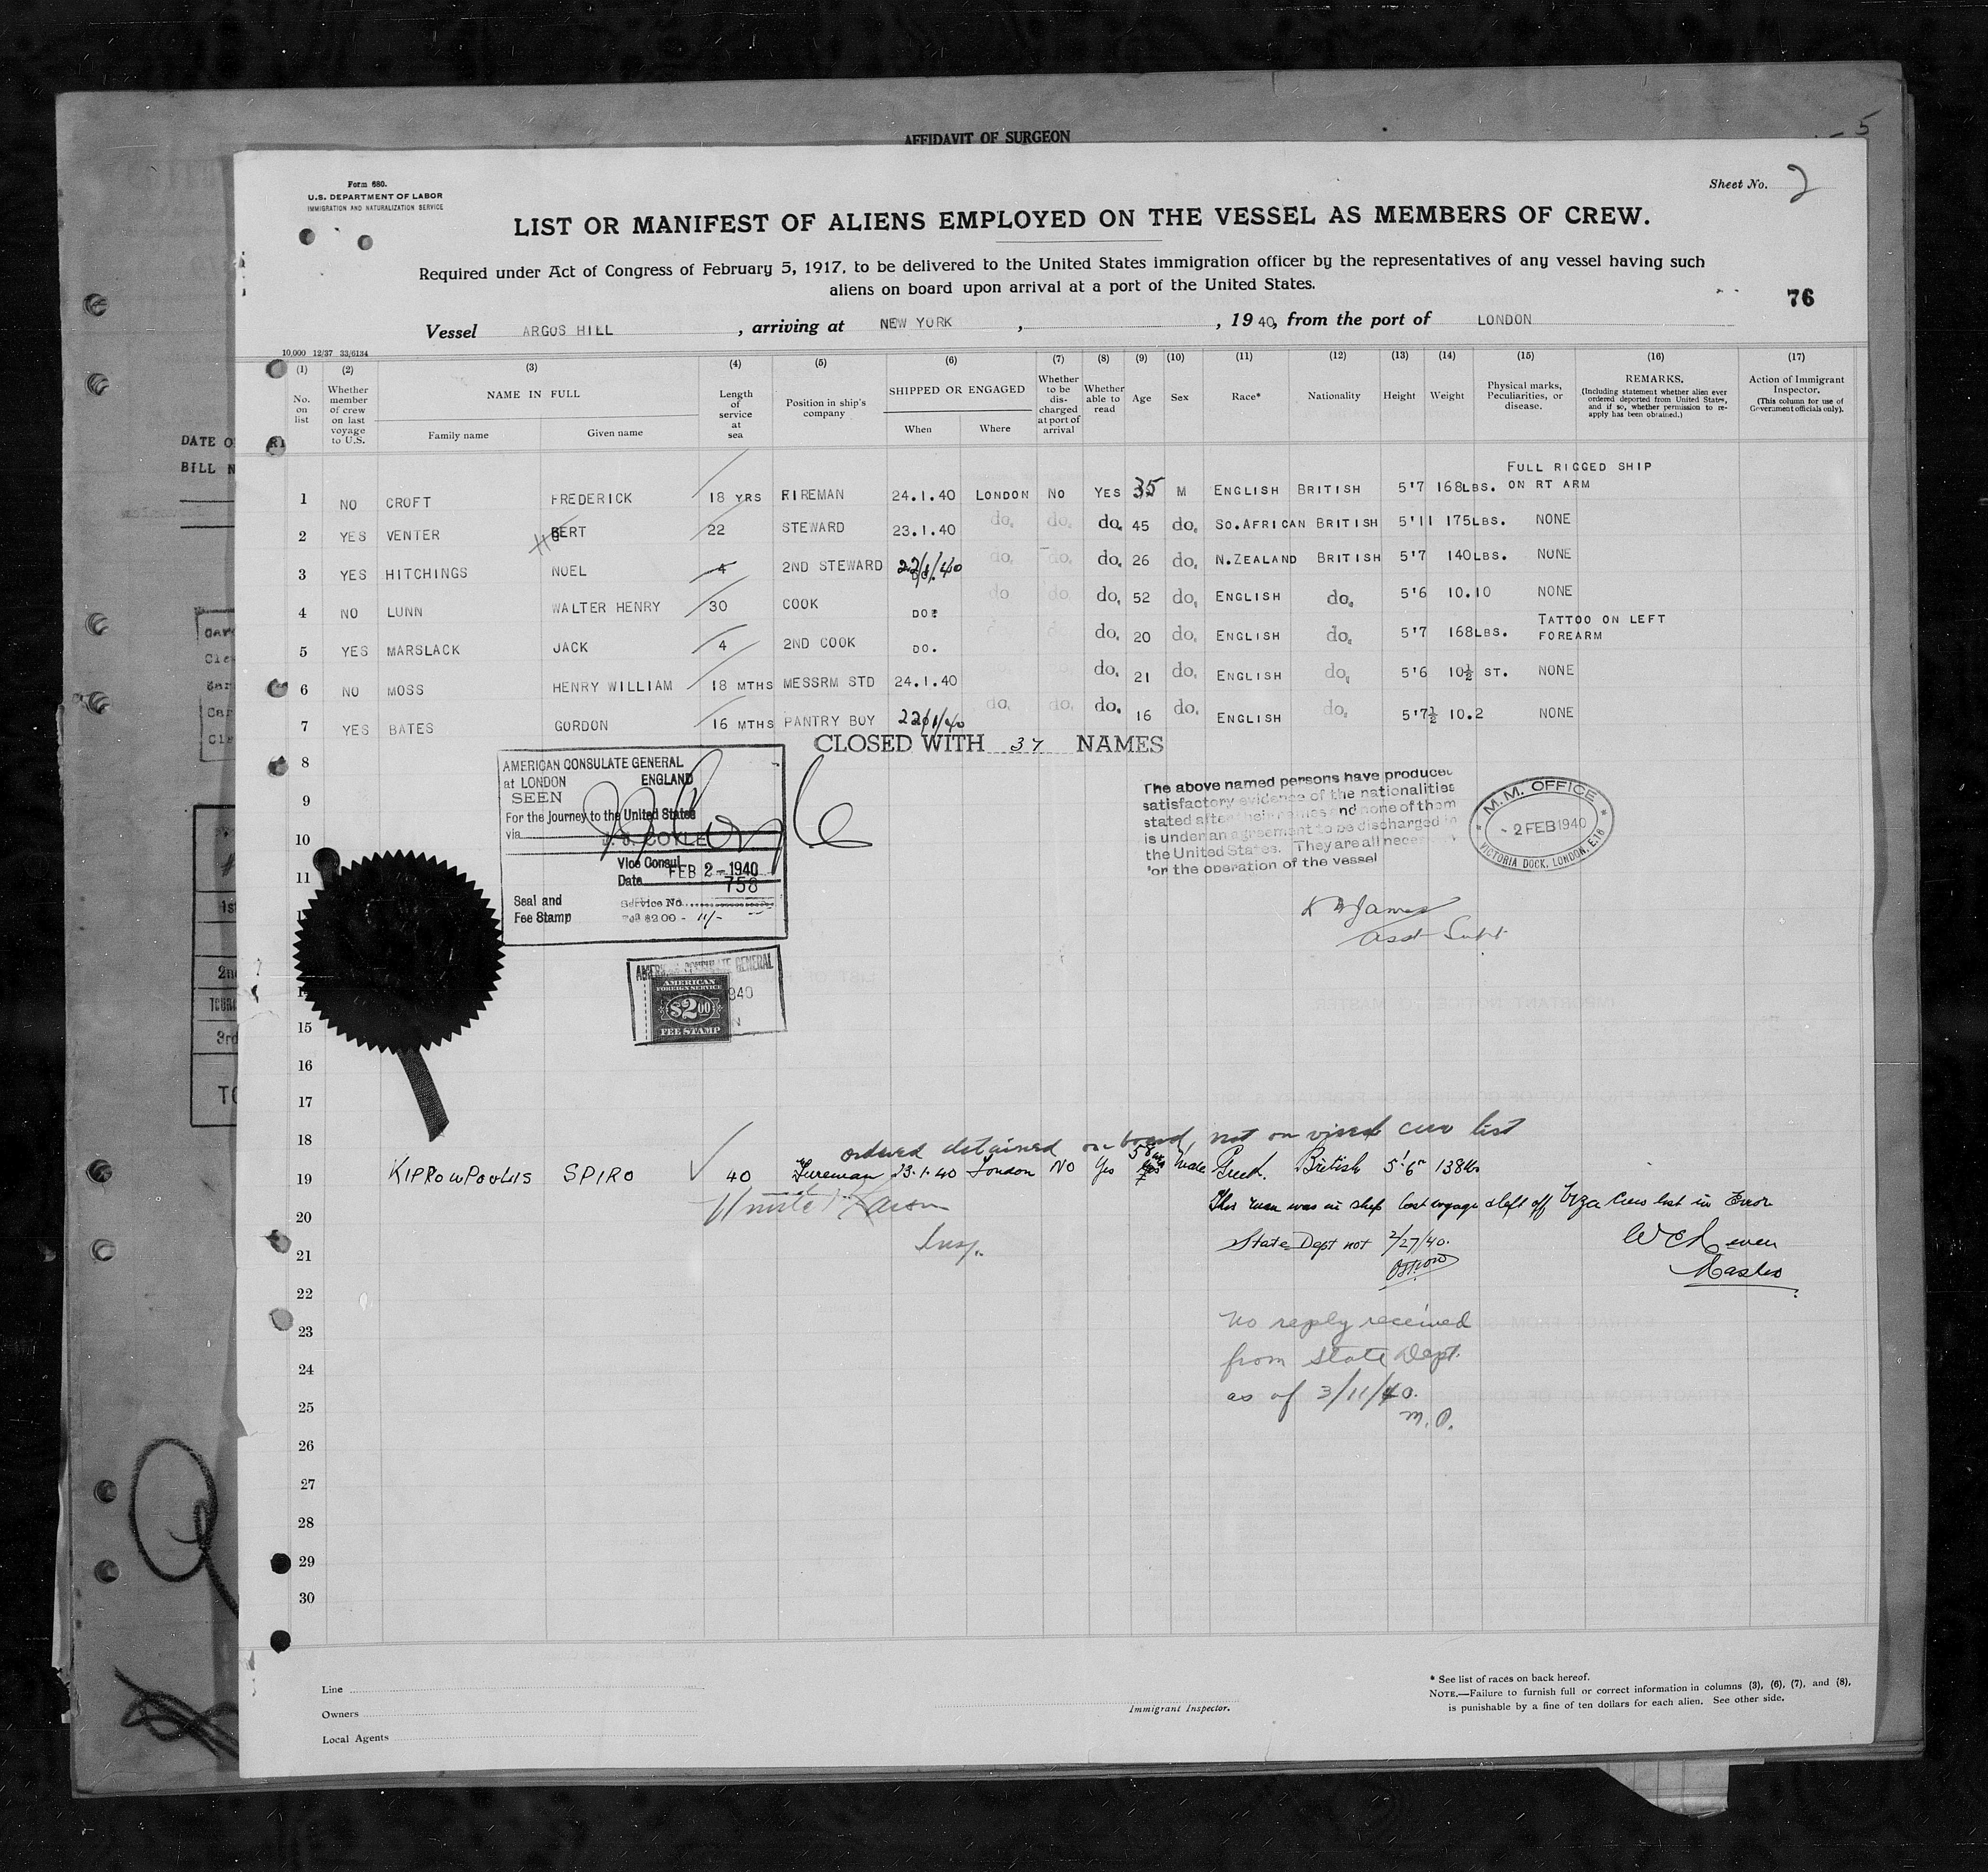 AFFIDAVIT OF SURGEON
5
Form 680.
U.S. DEPARTMENT OF LABOR
IMMIGRATION AND NATURALIZATION SERVICE
Sheet No. 2
LIST OR MANIFEST OF ALIENS EMPLOYED ON THE VESSEL AS MEMBERS OF CREW.
Required under Act of Congress of February 5, 1917, to be delivered to the United States immigration officer by the representatives of any vessel having such
aliens on board upon arrival at a port of the United States.
76
Vessel ARGOS HILL, arriving at NEW YORK, , 1940, from the port of LONDON
10,000 12/37 33/6134
(1) (2) (3) (4) (5) (6) (7) (8) (9) (10) (11) (12) (13) (14) (15) (16) (17)
No. on list
Whether member of crew on last voyage to U.S.
NAME IN FULL
Family name Given name
Length of service at sea
Position in ship's company
SHIPPED OR ENGAGED
When Where
Whether to be discharged at port of arrival
Whether able to read
Age
Sex
Race*
Nationality
Height
Weight
Physical marks, Peculiarities, or disease.
REMARKS.
(Including statement whether alien ever ordered deported from United States, and if so, whether permission to reapply has been obtained.)
Action of Immigrant Inspector.
(This column for use of Government officials only).
1 NO CROFT FREDERICK 18 YRS FIREMAN 24.1.40 LONDON NO YES 35 M ENGLISH BRITISH 5'7 168LBS. FULL RIGGED SHIP ON RT ARM
2 YES VENTER BERT 22 STEWARD 23.1.40 do. do. do. 45 do. SO.AFRICAN BRITISH 5'11 175LBS. NONE
3 YES HITCHINGS NOEL 4 2ND STEWARD 22/1/40 do. do. do. 26 do. N.ZEALAND BRITISH 5'7 140LBS. NONE
4 NO LUNN WALTER HENRY 30 COOK DO. do do. do. 52 do. ENGLISH do. 5'6 10.10 NONE
5 YES MARSLACK JACK 4 2ND COOK DO. do. 20 do. ENGLISH do. 5'7 168LBS. TATTOO ON LEFT FOREARM
6 NO MOSS HENRY WILLIAM 18 MTHS MESSRM STD 24.1.40 do. 21 do. ENGLISH do. 5'6 10½ ST. NONE
7 YES BATES GORDON 16 MTHS PANTRY BOY 22/1/40 do. do. do. 16 do. ENGLISH do. 5'7½ 10.2 NONE
CLOSED WITH 37 NAMES
8
9
10
11
15
16
17
18
AMERICAN CONSULATE GENERAL
at LONDON ENGLAND
SEEN
For the journey to the United States
via
J. J. COYLE
Vice Consul
Date FEB 2-1940
758
Seal and Service No.
Fee Stamp Fee $2.00 - 11/-
AMERICAN CONSULATE GENERAL
AMERICAN
FOREIGN SERVICE
$2.00
FEE STAMP
1940
The above named persons have produced
satisfactory evidence of the nationalities
stated after their names and none of them
is under an agreement to be discharged in
the United States. They are all necessary
for the operation of the vessel
M.M. OFFICE
- 2 FEB 1940
VICTORIA DOCK, LONDON, E16
James
Asst Supt
ordered detained on board, not on visaed crew list
19 KIPROWPOULIS SPIRO 40 Fireman 23.1.40 London NO Yes 58 Male Greek British 5'6" 138lbs
20 This man was in ship last voyage & left off Visa Crew list in Error
Insp.
21 State Dept not 2/27/40.
Master
22
23 No reply received
24 from State Dept.
25 as of 3/11/40.
M.O.
26
27
28
29
30
Line
Owners
Local Agents
Immigrant Inspector.
* See list of races on back hereof.
NOTE.—Failure to furnish full or correct information in columns (3), (6), (7), and (8),
is punishable by a fine of ten dollars for each alien. See other side.
DATE O
BILL N
1st
2nd
3rd
TO